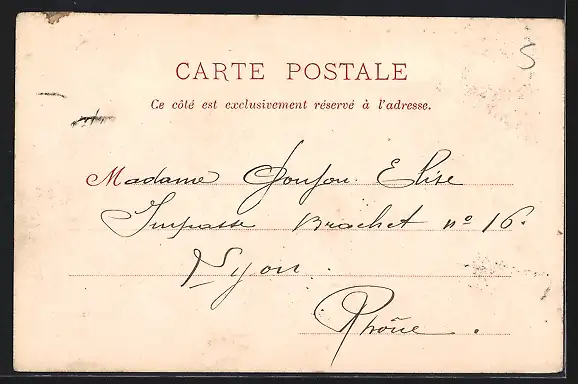 CARTE POSTALE
Ce côté est exclusivement réservé à l'adresse.
Madame Joujou Elise
Impasse Brachet nº 16.
Lyon.
Rhône.